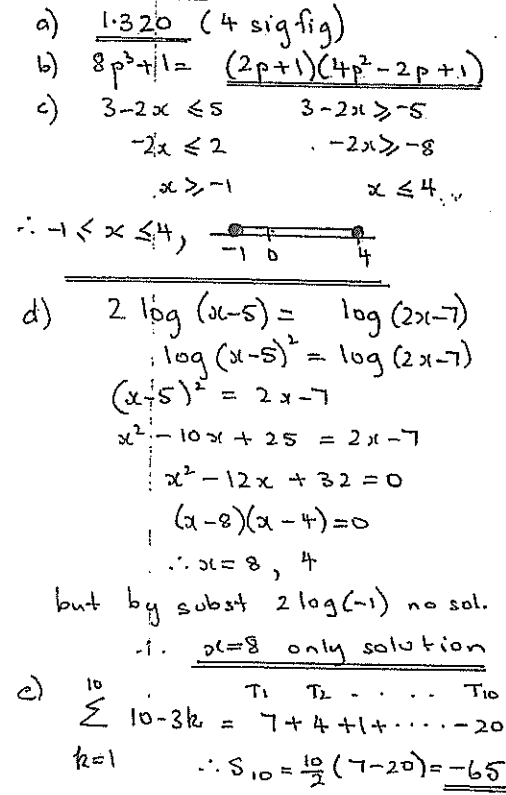 a) 1.320 (4 sig fig)
b) 8p³+1 = (2p+1)(4p²-2p+1)
c) 3-2x ≤ 5 3-2x ≥ -5
-2x ≤ 2 -2x ≥ -8
x ≥ -1 x ≤ 4
∴ -1 ≤ x ≤ 4, -1 0 4
d) 2 log (x-5) = log (2x-7)
log (x-5)² = log (2x-7)
(x-5)² = 2x-7
x² - 10x + 25 = 2x-7
x² - 12x + 32 = 0
(x-8)(x-4)=0
∴ x = 8, 4
but by subst 2 log(-1) no sol.
∴ x=8 only solution
e) 10 T1 T2 - . . . . T10
Σ 10-3k = 7+4+1+.....-20
k=1 ∴ S10 = 10/2 (7-20) = -65